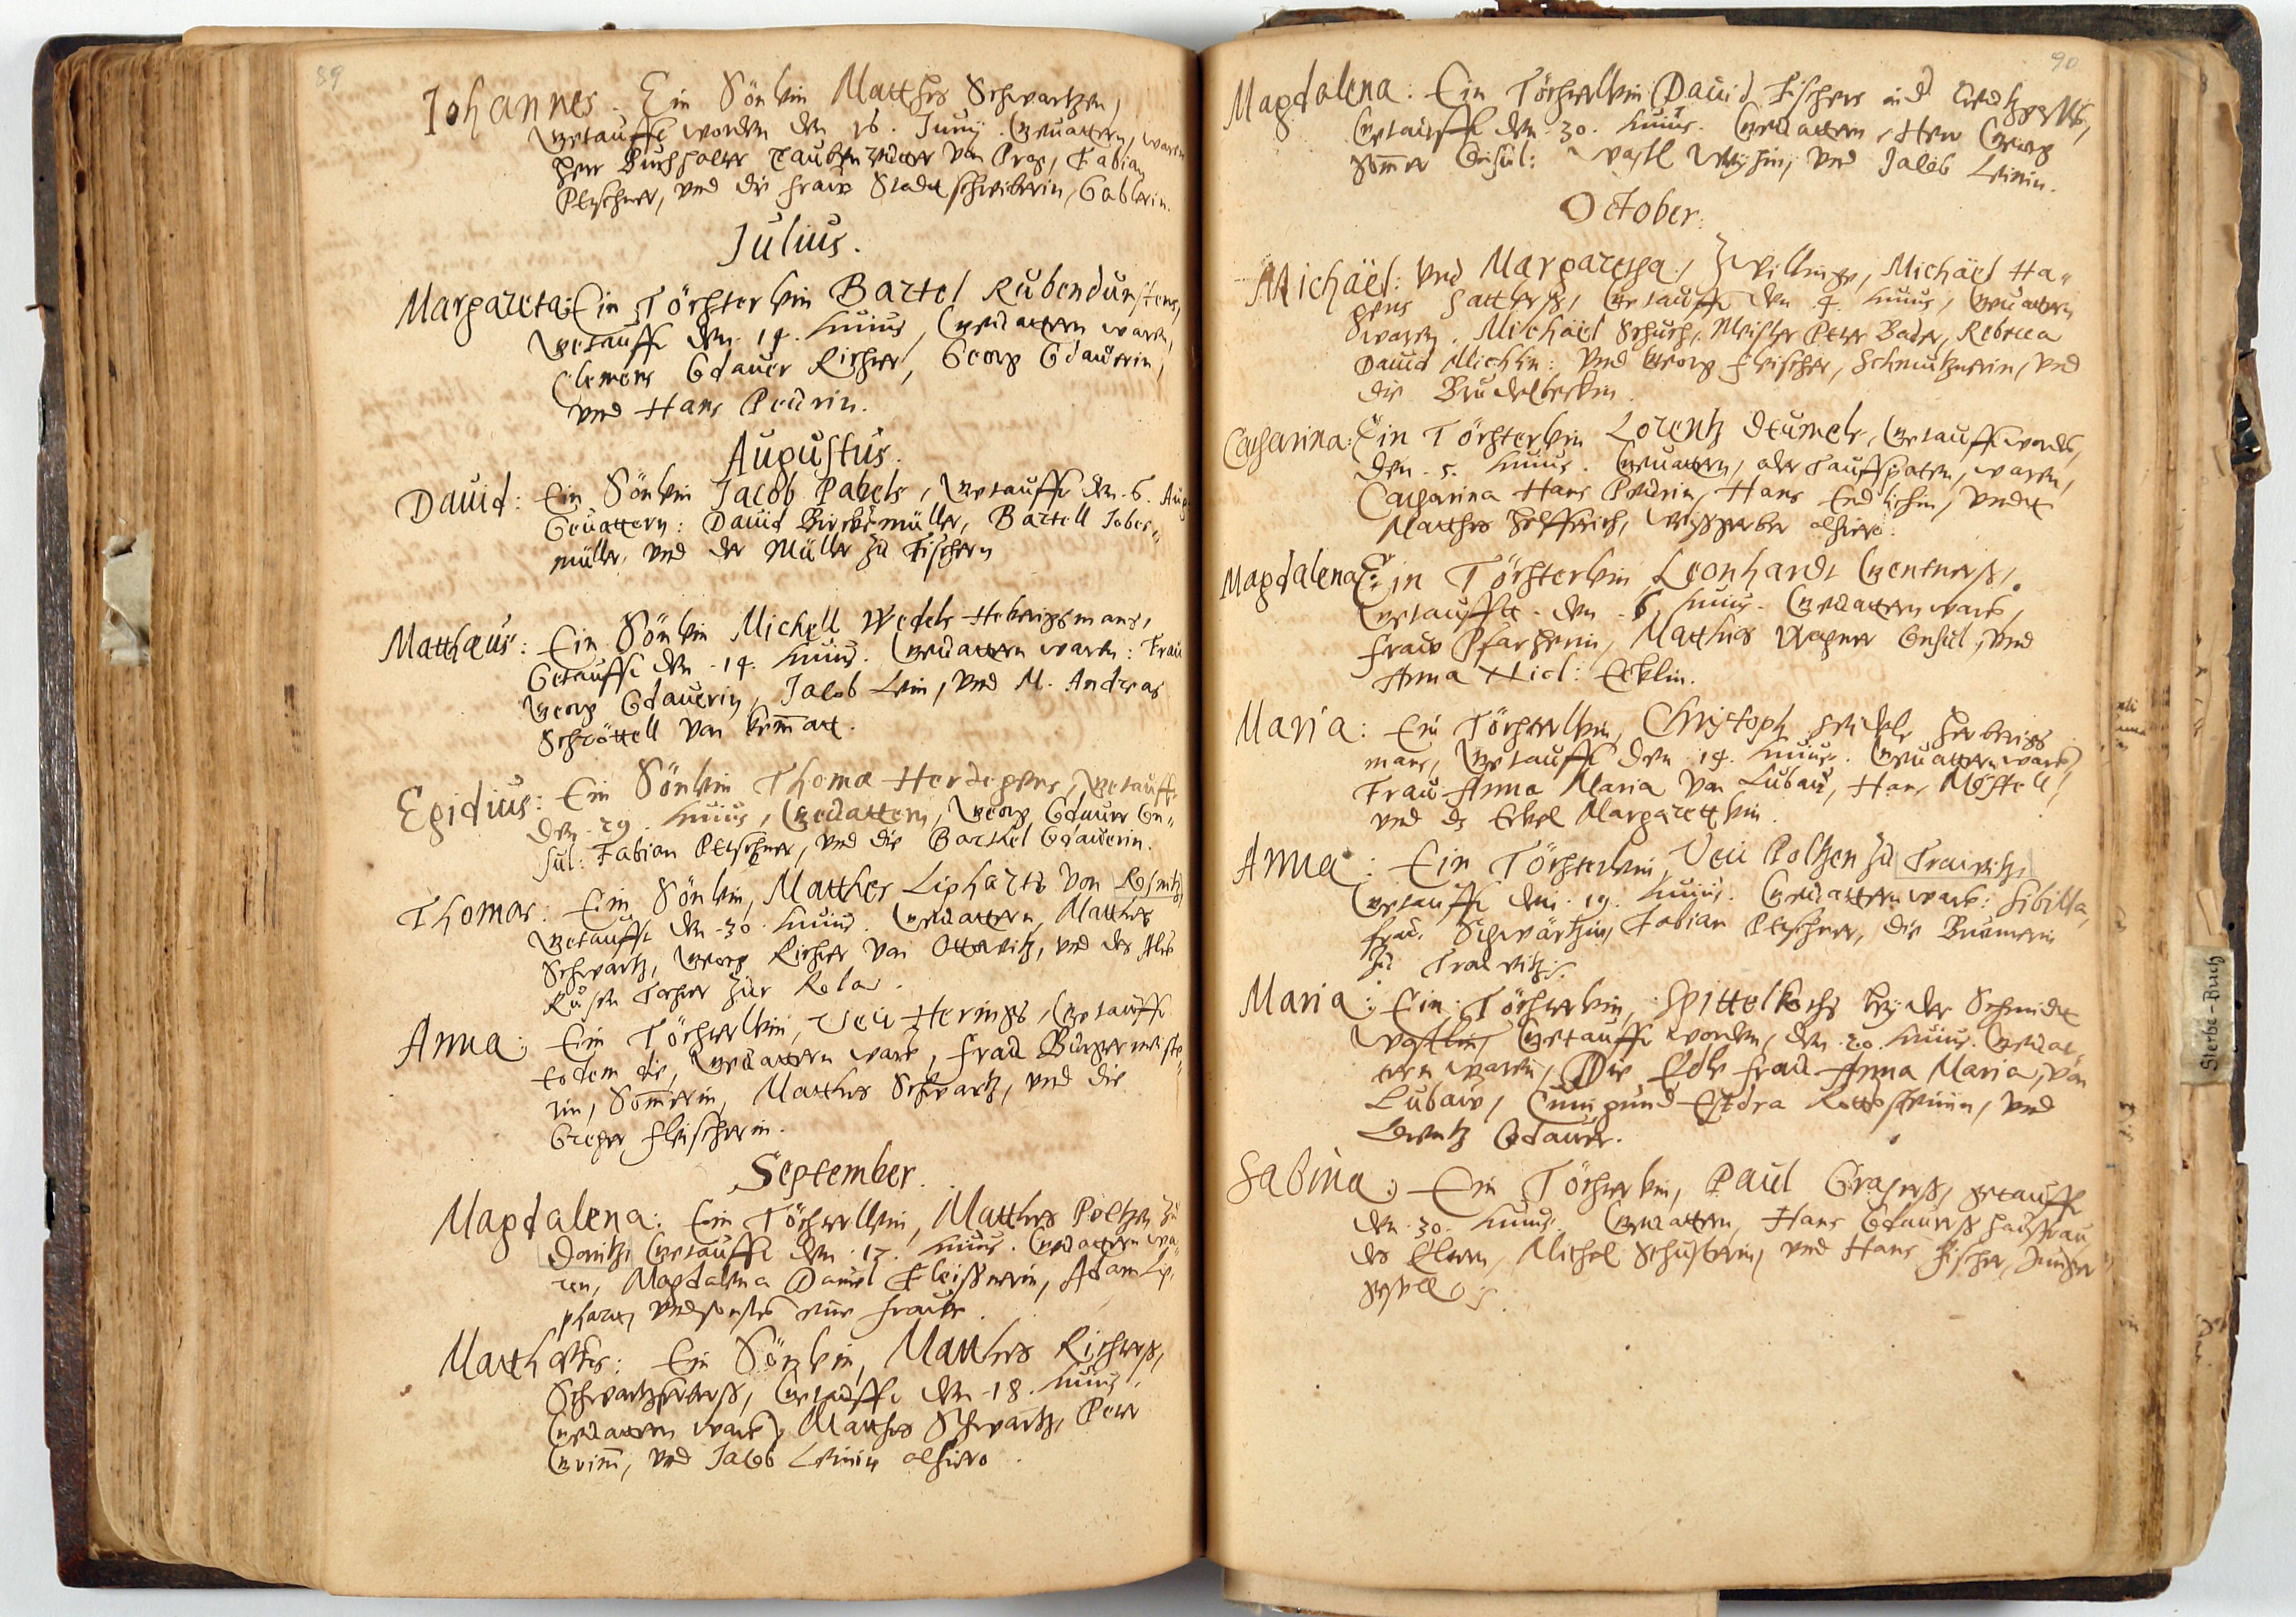 89
Johannes. Ein Sönlein Matthes Schwartzen,
getaufft worden den 16. Junij. Gevattern, waren
Herr Buchhalter Taubenreuter von Prag, Fabian
Petschner, und die Fraw Stadtschreiberin, Gablerin.
Julius.
Margareta: Ein Töchterlein Bartel Rubendunstens,
getaufft den. 14. huius, Gevattern waren,
Clemens Gdauer Richter, Georg Gdauerin,
und Hans Peurin.
Augustus.
David: Ein Sönlein Jacob Pabels, getaufft den. 6. Aug
Gevattern: David Birckmüller, Bartell Jobes-
müller, und der Müller zu Fischern
Matthaeus: Ein Sönlein Michell Wedels Hebrigsmans,
Getaufft den. 14. huius. Gevattern waren: Frau
Georg Gdauerin, Jacob Lein, und M. Andreas
Schröttell von Kemnatt.
Egidius: Ein Sönlein Thoma Herdegens, getaufft
den. 29. huius, Gevattern, Georg Gdaurer Con-
sul: Fabian Petschner, und die Barthel Gdauerin.
Thomas: Ein Sönlein, Matthes Lipharts von
getaufft den. 30. huius. Gevattern, Matthes
Schwartz, Georg Richter von Ottowitz, und des
Tochter zur
Anna: Ein Töchterlein, Veit Herings, Getaufft
eodem die, Gevattern warn, Frau Bürgermeiste-
rin, Sommerin, Matthes Schwartz, und die
Greger Fleischerin.
September.
Magdalena: Ein Töchterlein, Matthes Poltzen zu
Donitz, Getaufft den. 17. huius. Gevattern wa-
ren, Magdalena Daniel Fleissnerin, Adam Lip-
phart, und sonsten eine Frawe.
Matthaeus: Ein Sönlein, Matthes Richters,
Schwartzferbers, Getaufft den. 18. huius.
Gevattern warn, Matthes Schwartz, Peter
Grimm, und Jacob Leinin alhiero.
90
Magdalena: Ein Töchterlein David Fischers
Getaufft den. 30. huius. Gevattern, Herr Georg
Sommer Consul: und Jacob Leinin.
October.
Michäel: und Margaretha, Zwillinge, Michäel Ha-
gens Sattlers, Getaufft den 4. huius, Gevattern
waren. Michäel Schuch, Meister Peter Bader, Rebecca
David Michlin: und Georg Fleischer, Schmutznerin, und
die Brudelbeckin.
Catharina: Ein Töchterlein Lorentz Deumels, Getaufft worden,
den. 5. huius. Gevattern, oder Tauffpaten, waren,
Catharina Hans Peurin, Hans Endlichin, undt
Matthes Helfferich, Weissgerber alhiero.
Magdalena: Ein Töchterlein Leonhardt Gentners,
getaufft. den. 6. huius. Gevattern warn,
Fraw Pfarherrin, Matthes Wagner Consul, und
Anna Nicl: Ecklin.
Maria: Ein Töchterlein, Christoph Seidels Herbrigs
mans, Getaufft den. 14. huius. Gevattern warn,
Frau Anna Maria von Lubau, Hans Möstell,
und ds Erkel Margarettlein.
Anna: Ein Töchterlein, Veit Poltzen zu Trawitz,
Getaufft den. 19. huius. Gevattern warn: Sibilla,
Frau Schwärtzin, Fabian Petschner, die
zu Trawitz.
Maria: Ein Töchterlein, Spittelkochs bey der Schmidt
Getaufft worden, den. 20. huius. Gevat-
tern waren, Die Edle Frau Anna Maria, von
Lubaw, Cunigund Esdra und
Lorentz Gdaurer.
Sabina: Ein Töchterlein, Paul Grasers, getaufft
den. 30. huius. Gevattern, Hans Gdaurers Hausfrau
des Eltern, Michel Schusterin, und Hans Fischer, Junger
gesell.
Sterbe-Buch